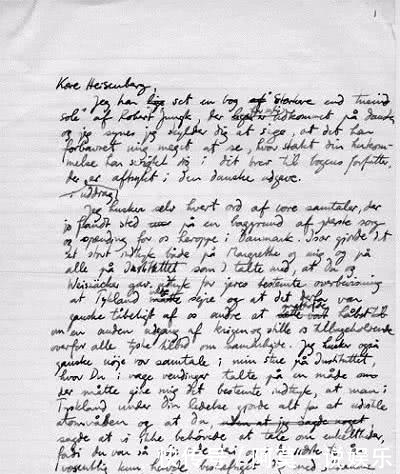 1
Kære Heisenberg,
Jeg har lige set en bog af "Stærkere end tusind
sole" af Robert Jungk, der er udkommet på dansk
og jeg synes jeg skylder dig at sige, at det har
forbavset mig meget at se, hvor stærkt din hukom-
melse har svigtet dig i dit brev til bogens forfatter.
der er aftrykt i den danske udgave.
i uddrag
Jeg husker selv hvert ord af vore samtaler, der
jo fandt sted på en baggrund af yderste sorg
og spænding for os heroppe i Danmark. Især gjorde det
et stort indtryk både på Margrethe og mig og på
alle på Instituttet som I talte med, at Du og
Weizsäcker gav udtryk for jeres bestemte overbevisning
at Tyskland måtte sejre og at det derfor var
ganske tåbeligt af os andre at håbet til
om en anden udgang af krigen og stille os tilbageholdende
overfor alle tyske tilbud om samarbejde. Jeg husker også
ganske nøje vor samtale i min stue på Instituttet,
hvor Du i vage vendinger talte på en måde som
der måtte give mig det bestemte indtryk, at man i
Tyskland under Din ledelse gjorde alt for at udvikle
atomvåben og at Du,
sagde at vi ikke behøvede at tale om enkeltheder,
fordi du var så
væsentlig kun havde beskæftiget med